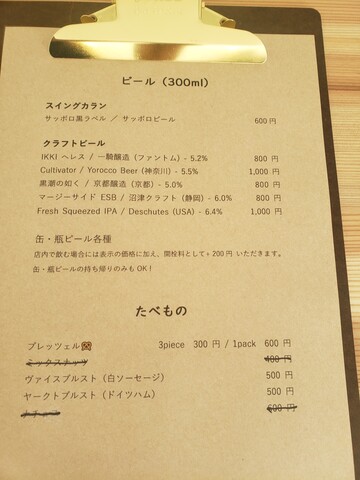 ビール（300ml）
スイングカラン
サッポロ黒ラベル ／ サッポロビール 600円
クラフトビール
IKKI ヘレス / 一騎醸造（ファントム）- 5.2% 800 円
Cultivator / Yorocco Beer (神奈川) - 5.5% 1,000 円
黒潮の如く / 京都醸造（京都）- 5.0% 800 円
マージーサイド ESB / 沼津クラフト（静岡）- 6.0% 800 円
Fresh Squeezed IPA / Deschutes (USA) - 6.4% 1,000 円
缶・瓶ビール各種
店内で飲む場合には表示の価格に加え、開栓料として+ 200 円 いただきます。
缶・瓶ビールの持ち帰りのみも OK！
たべもの
プレッツェル🥨 3piece 300 円 / 1pack 600 円
ミックスナッツ 400 円
ヴァイスブルスト（白ソーセージ） 500 円
ヤークトブルスト（ドイツハム） 500 円
600 円